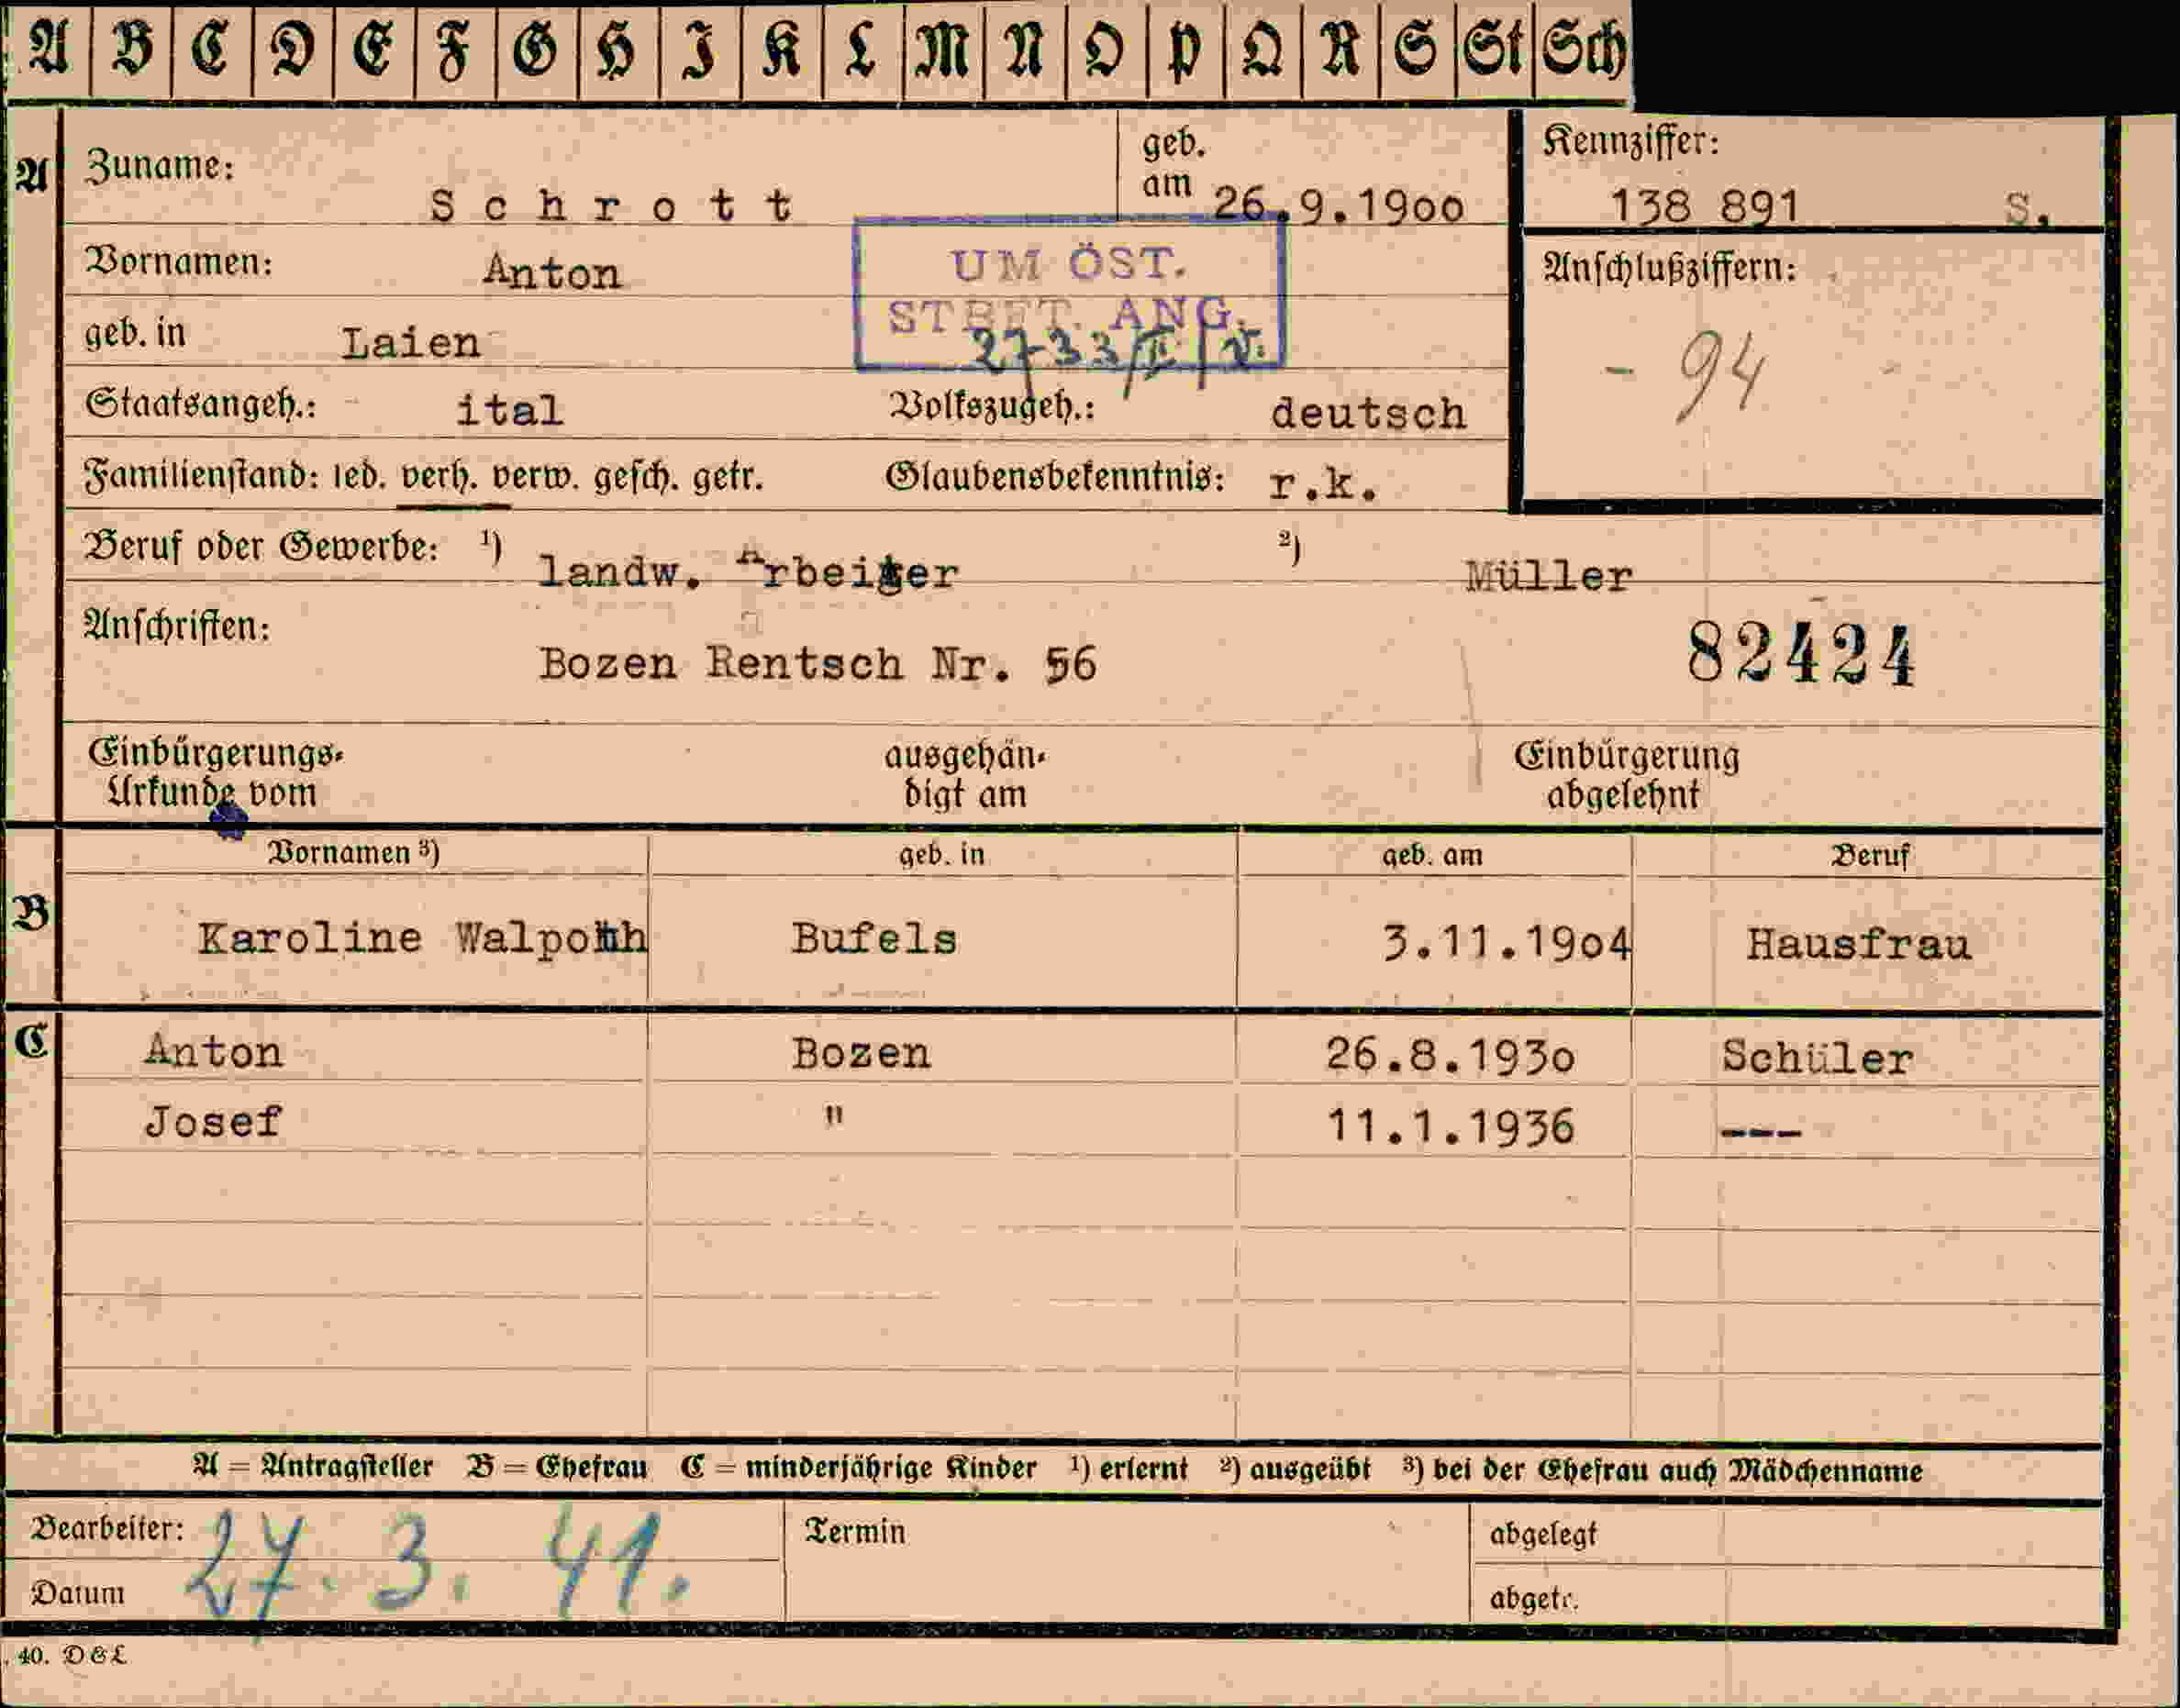 A B C D E F G H I K L M N O P Q R S St Sch
A Zuname: Schrott geb. am 26.9.1900 Kennziffer: 138 891 S.
Vornamen: Anton UM ÖST. Anschlußziffern:
STBET. ANG.
geb. in Laien 2733/II/V. - 94
Staatsangeh.: ital Volkszugeh.: deutsch
Familienstand: led. verh. verw. gesch. getr. Glaubensbekenntnis: r.k.
Beruf oder Gewerbe: ¹) landw. Arbeiter ²) Müller
Anschriften:
Bozen Rentsch Nr. 56 82424
Einbürgerungs- ausgehän- Einbürgerung
Urkunde vom digt am abgelehnt
Vornamen ³) geb. in geb. am Beruf
B Karoline Bufels 3.11.1904 Hausfrau
C Anton Bozen 26.8.1930 Schüler
Josef " 11.1.1936 ---
A = Antragsteller B = Ehefrau C = minderjährige Kinder ¹) erlernt ²) ausgeübt ³) bei der Ehefrau auch Mädchenname
Bearbeiter: 27. 3. 41. Termin abgelegt
Datum abgetr.
. 40. D&L